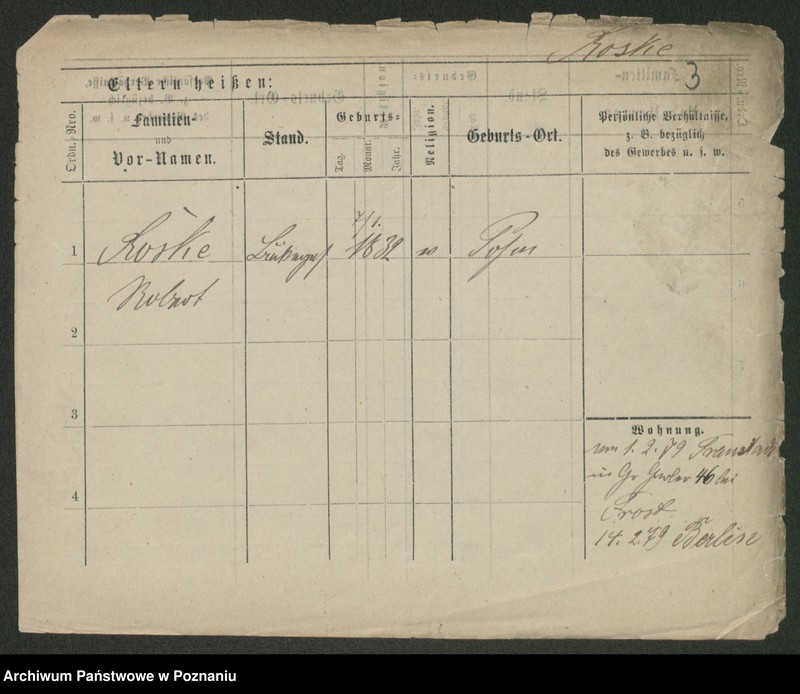 Roske
3
Eltern heißen:
Ordn.-Nro.
Familien-
und
Vor-Namen.
Stand.
Geburts-
Tag.
Monat.
Jahr.
Religion.
Geburts-Ort.
Persönliche Verhältnisse,
z. B. bezüglich
des Gewerbes u. s. w.
7/1.
1 Roske 1832 Posen
Robert
2
3
4
Wohnung.
1. 2. 79
Gr Gerber 46 bei
Frost
14. 2. 79 Berlin
Archiwum Państwowe w Poznaniu